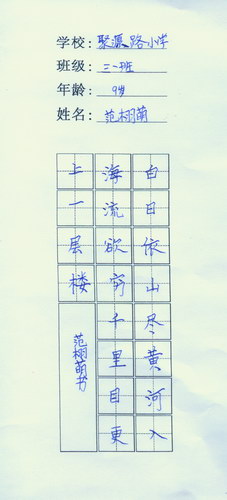 学校：聚源路小学
班级：三一班
年龄：9岁
姓名：范栩萌
白日依山尽黄河入
海流欲穷千里目更
上一层楼
范栩萌书